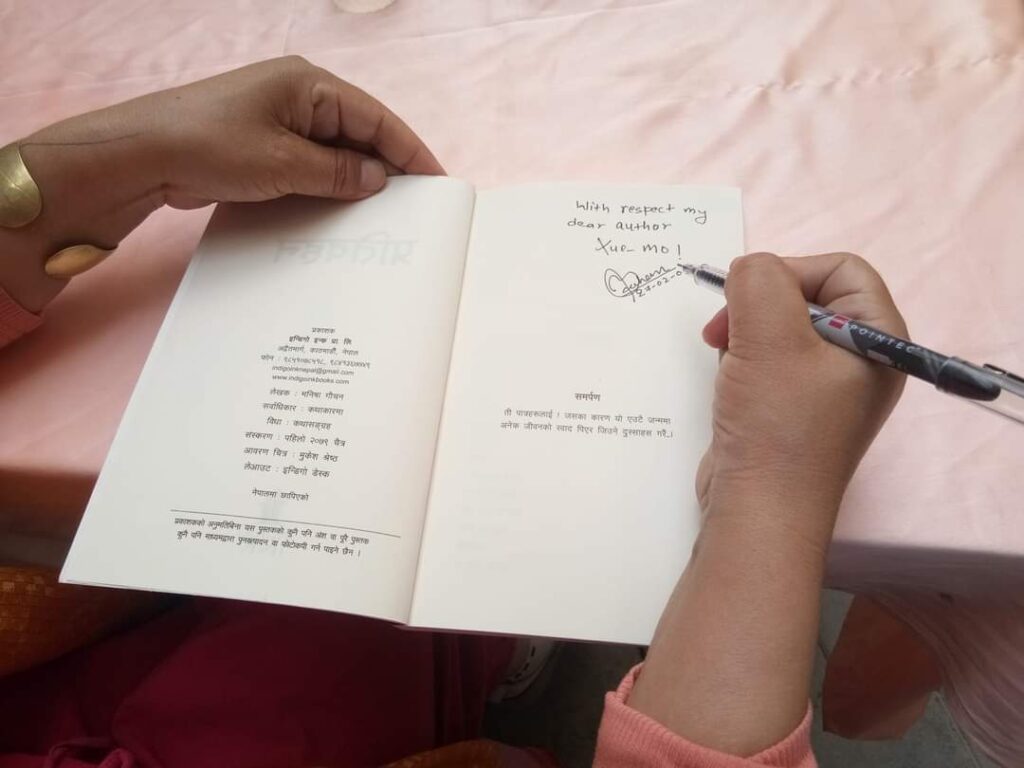 प्रकाशक
इन्डिगो इन्क प्रा लि
अद्वैतमार्ग, काठमाडौं, नेपाल
indigoinknepal@gmail.com
www.indigoinkbooks.com
लेखक : मनिषा गौचन
सर्वाधिकार : कथाकारमा
विधा : कथासङ्ग्रह
संस्करण : पहिलो २०७९ चैत्र
आवरण चित्र : मुकेश श्रेष्ठ
लेआउट : इन्डिगो डेस्क
नेपालमा छापिएको
प्रकाशकको अनुमतिबिना यस पुस्तकको कुनै पनि अंश वा पूरै पुस्तक
कुनै पनि माध्यमद्वारा पुनरुत्पादन वा फोटोकपी गर्न पाइने छैन ।
With respect my
dear author
Xue-mo!
समर्पण
ती पात्रहरूलाई ! जसका कारण यो एउटै जन्ममा
अनेक जीवनको स्वाद पिएर जिउने दुस्साहस गरैँ..।
POINTEC